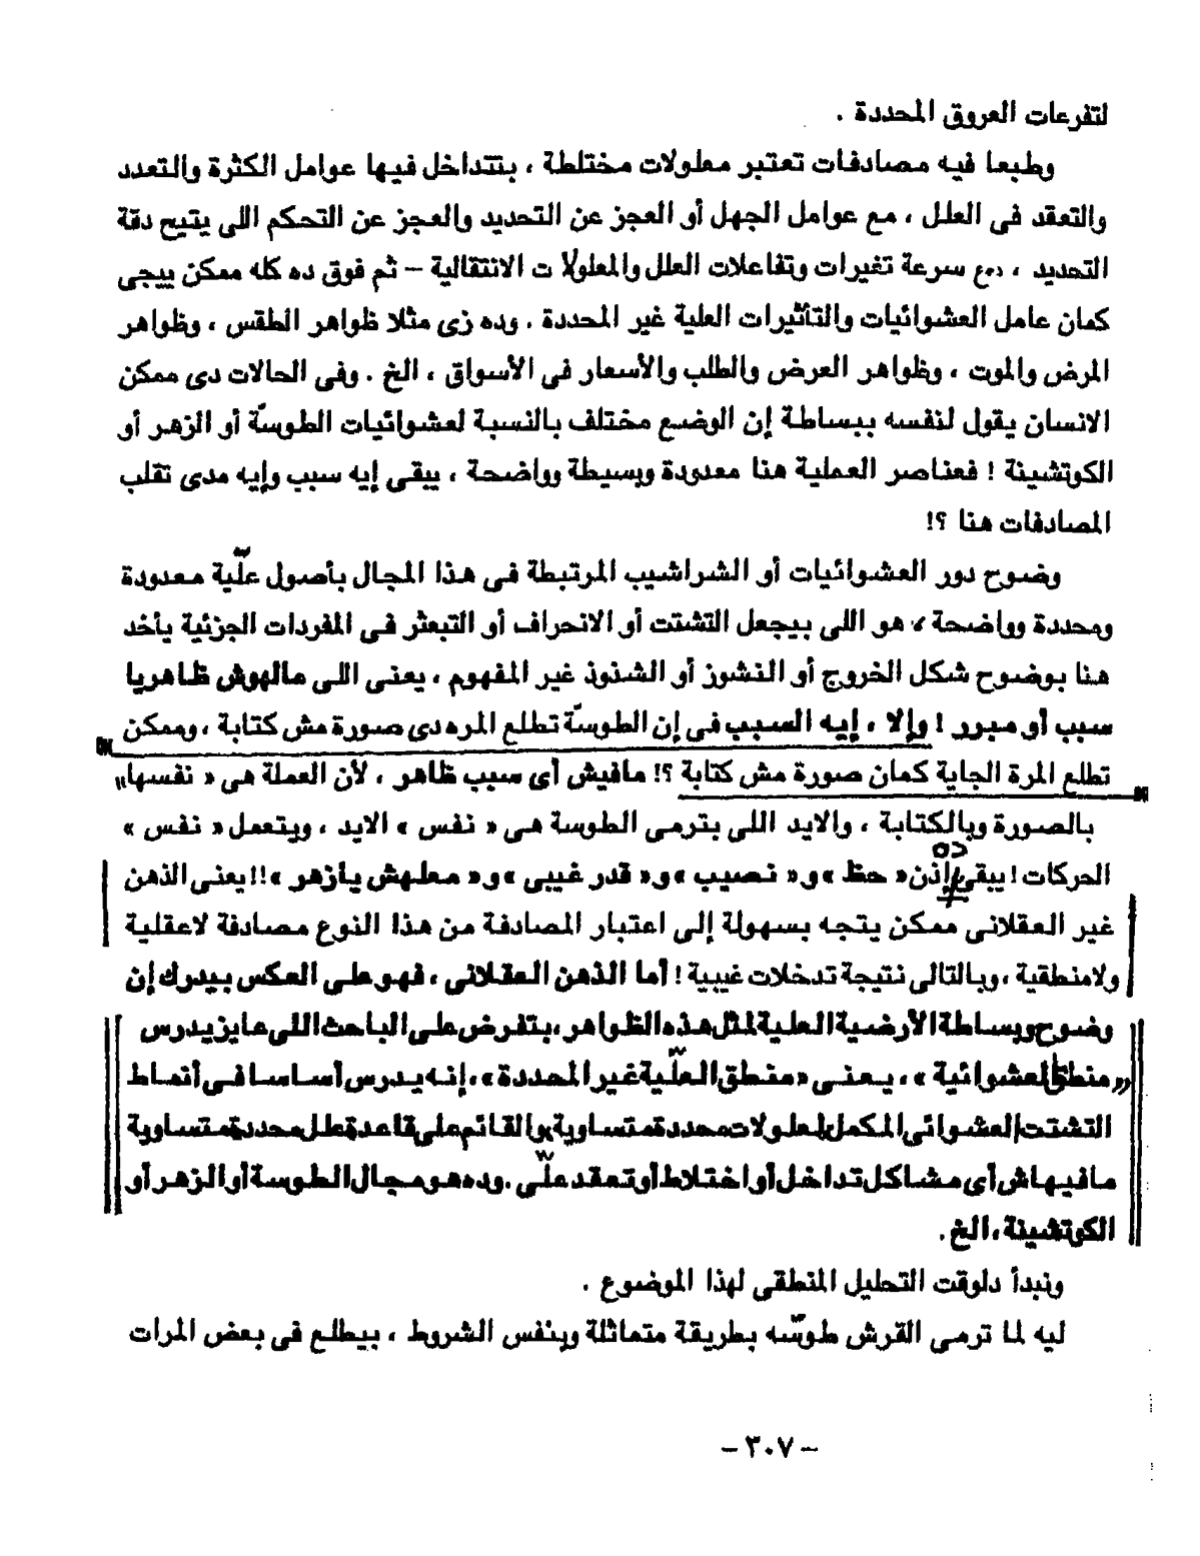 لتفرعات العروق المحددة .
وطبعا فيه مصادفات تعتبر معلولات مختلطة ، بتتداخل فيها عوامل الكثرة والتعدد
والتعقد فى العلل ، مع عوامل الجهل أو العجز عن التحديد والعجز عن التحكم اللى يتيح دقة
التحديد ، مع سرعة تغيرات وتفاعلات العلل والمعلولا ت الانتقالية – ثم فوق ده كله ممكن ييجى
كمان عامل العشوائيات والتأثيرات العلية غير المحددة . وده زى مثلا ظواهر الطقس ، وظواهر
المرض والموت ، وظواهر العرض والطلب والأسعار فى الأسواق ، الخ . وفى الحالات دى ممكن
الانسان يقول لنفسه ببساطة إن الوضع مختلف بالنسبة لعشوائيات الطوسّة أو الزهر أو
الكوتشينة ! فعناصر العملية هنا معدودة وبسيطة وواضحة ، يبقى إيه سبب وإيه مدى تقلب
المصادفات هنا ؟!
وضوح دور العشوائيات أو الشراشيب المرتبطة فى هذا المجال بأصول علّية معدودة
ومحددة وواضحة ، هو اللى بيجعل التشتت أو الانحراف أو التبعثر فى المفردات الجزئية يأخد
هنا بوضوح شكل الخروج أو النشوز أو الشذوذ غير المفهوم ، يعنى اللى مالهوش ظاهريا
سبب أو مبرر ! وإلا ، إيه السبب فى إن الطوسّة تطلع المره دى صورة مش كتابة ، وممكن
تطلع المرة الجاية كمان صورة مش كتابة ؟! مافيش أى سبب ظاهر ، لأن العملة هى « نفسها»
بالصورة وبالكتابة ، والايد اللى بترمى الطوسة هى « نفس » الايد ، وبتعمل « نفس »
ده
الحركات ! يبقى إذن « حظ » و« نصيب » و« قدر غيبى » و« معلهش يازهر » !! يعنى الذهن
غير العقلانى ممكن يتجه بسهولة إلى اعتبار المصادفة من هذا النوع مصادفة لاعقلية
ولامنطقية ، وبالتالى نتيجة تدخلات غيبية ! أما الذهن العقلانى ، فهو على العكس بيدرك إن
وضوح وبساطة الأرضية العلية لمثل هذه الظواهر ، بتفرض على الباحث اللى عايز يدرس
« منطق العشوائية » ، يعنى « منطق العلّية غير المحددة » ، إنه يدرس أساسا فى أنماط
التشتت العشوائى المكمل لمعلولات محددة متساوية والقائم على قاعدة علل محددة متساوية
مافيهاش أى مشاكل تداخل أو اختلاط أو تعقد علّى . وده هو مجال الطوسة أو الزهر أو
الكوتشينة ، الخ .
ونبدأ دلوقت التحليل المنطقى لهذا الموضوع .
ليه لما ترمى القرش طوسّه بطريقة متماثلة وبنفس الشروط ، بيطلع فى بعض المرات
– ٣٠٧ –